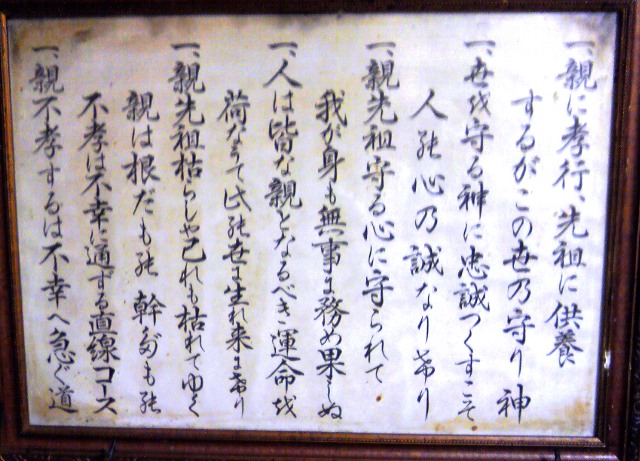 一、親に孝行、先祖に供養
するがこの世乃守り神
一、世を守る神に忠誠つくすこそ
人の心乃誠なりけり
一、親先祖守る心に守られて
我が身も無事に務め果しぬ
一、人は皆な親となるべき運命を
荷なうて此の世に生れ来にけり
一、親先祖枯らしや己れも枯れてゆく
親は根だもの 幹だもの
不孝は不幸に通ずる直線コース
一、親不孝するは不幸へ急ぐ道